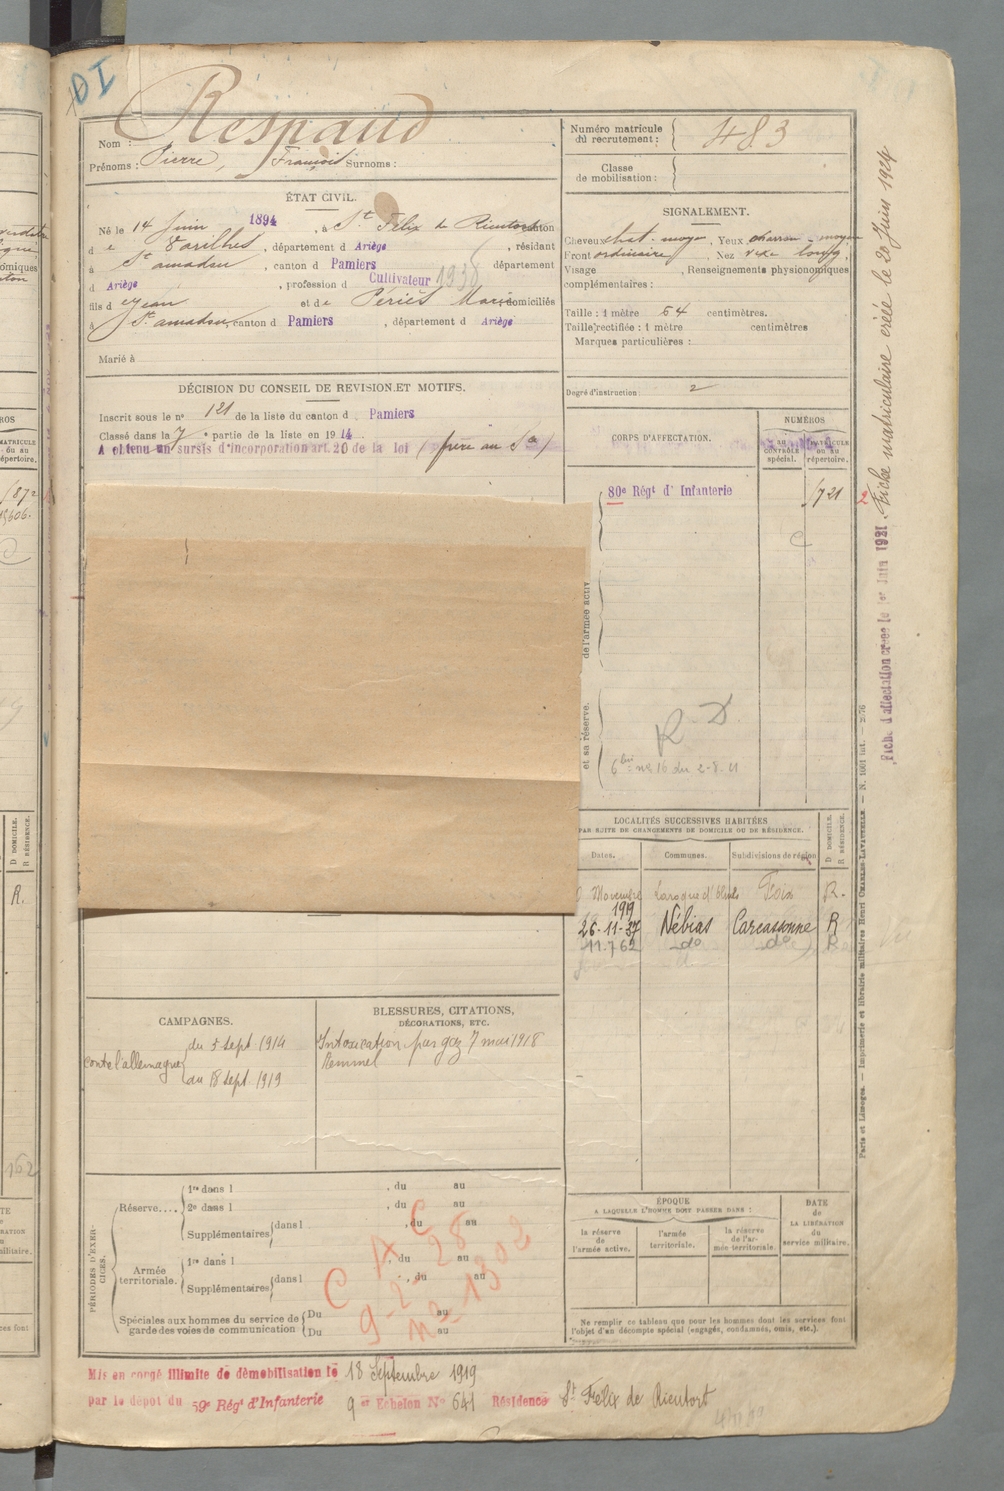 DI
Nom : Respaud
Prénoms : Pierre, François Surnome :
Numéro matricule du recrutement : 483
Classe de mobilisation :
ÉTAT CIVIL.
Né le 14 Juin 1894, à St Félix de Rieutord canton
d e Varilhes, département d Ariège, résidant
à St amadou, canton d Pamiers département
d Ariège, profession d Cultivateur 1938
fils d e Jean et de Périès Marie domiciliés
à St. amadou, canton d Pamiers, département d Ariège
Marié à
SIGNALEMENT.
Cheveux chat. moyen, Yeux marron moyen
Front ordinaire, Nez long,
Visage , Renseignements physionomiques
complémentaires :
Taille : 1 mètre 64 centimètres.
Taille rectifiée : 1 mètre centimètres
Marques particulières :
Degré d'instruction : 2
DÉCISION DU CONSEIL DE REVISION ET MOTIFS.
Inscrit sous le n° 121 de la liste du canton d Pamiers
Classé dans la 7e partie de la liste en 1914.
A obtenu un sursis d'incorporation art. 20 de la loi (frère au Sce)
CORPS D'AFFECTATION.
NUMÉROS
au CONTRÔLE spécial.
MATRICULE ou au répertoire.
80e Régt d' Infanterie 1721
de l'armée activ
et sa réserve.
R. D.
6 bis n° 16 du 2-8-21
LOCALITÉS SUCCESSIVES HABITÉES
PAR SUITE DE CHANGEMENTS DE DOMICILE OU DE RÉSIDENCE.
Dates. Communes. Subdivisions de région
D DOMICILE. R RÉSIDENCE.
Novembre 1919 Laroque d'Olmes Foix R.
26-11-37 Nébias Carcassonne R
11.7 62 do do R
CAMPAGNES.
contre l'allemagne
du 5 sept. 1914
au 18 sept. 1919
BLESSURES, CITATIONS,
DÉCORATIONS, ETC.
Intoxication par gaz 7 mai 1918
Kemmel
PÉRIODES D'EXERCICES.
Réserve....
1re dans l , du au
2e dans l , du au
Supplémentaires dans l , du au
Armée territoriale.
1re dans l , du au
Supplémentaires dans l , du au
Spéciales aux hommes du service de garde des voies de communication
Du au
Du au
ÉPOQUE
A LAQUELLE L'HOMME DOIT PASSER DANS :
la réserve de l'armée active.
l'armée territoriale.
la réserve de l'armée territoriale.
DATE de LA LIBÉRATION du service militaire.
Ne remplir ce tableau que pour les hommes dont les services font
l'objet d'un décompte spécial (engagés, condamnés, omis, etc.).
Mis en congé illimité de démobilisation le 18 Septembre 1919
par le dépôt du 59e Régt d'Infanterie 9 er Echelon No 641 Résidence St Felix de Rieutort
Fiche d'affectation créée le 1er Juin 1921. Fiche matriculaire créée le 20 Juin 1924
Paris et Limoges. — Imprimerie et librairie militaires Henri CHARLES-LAVAUZELLE. — N. 1001 int. — 2.76